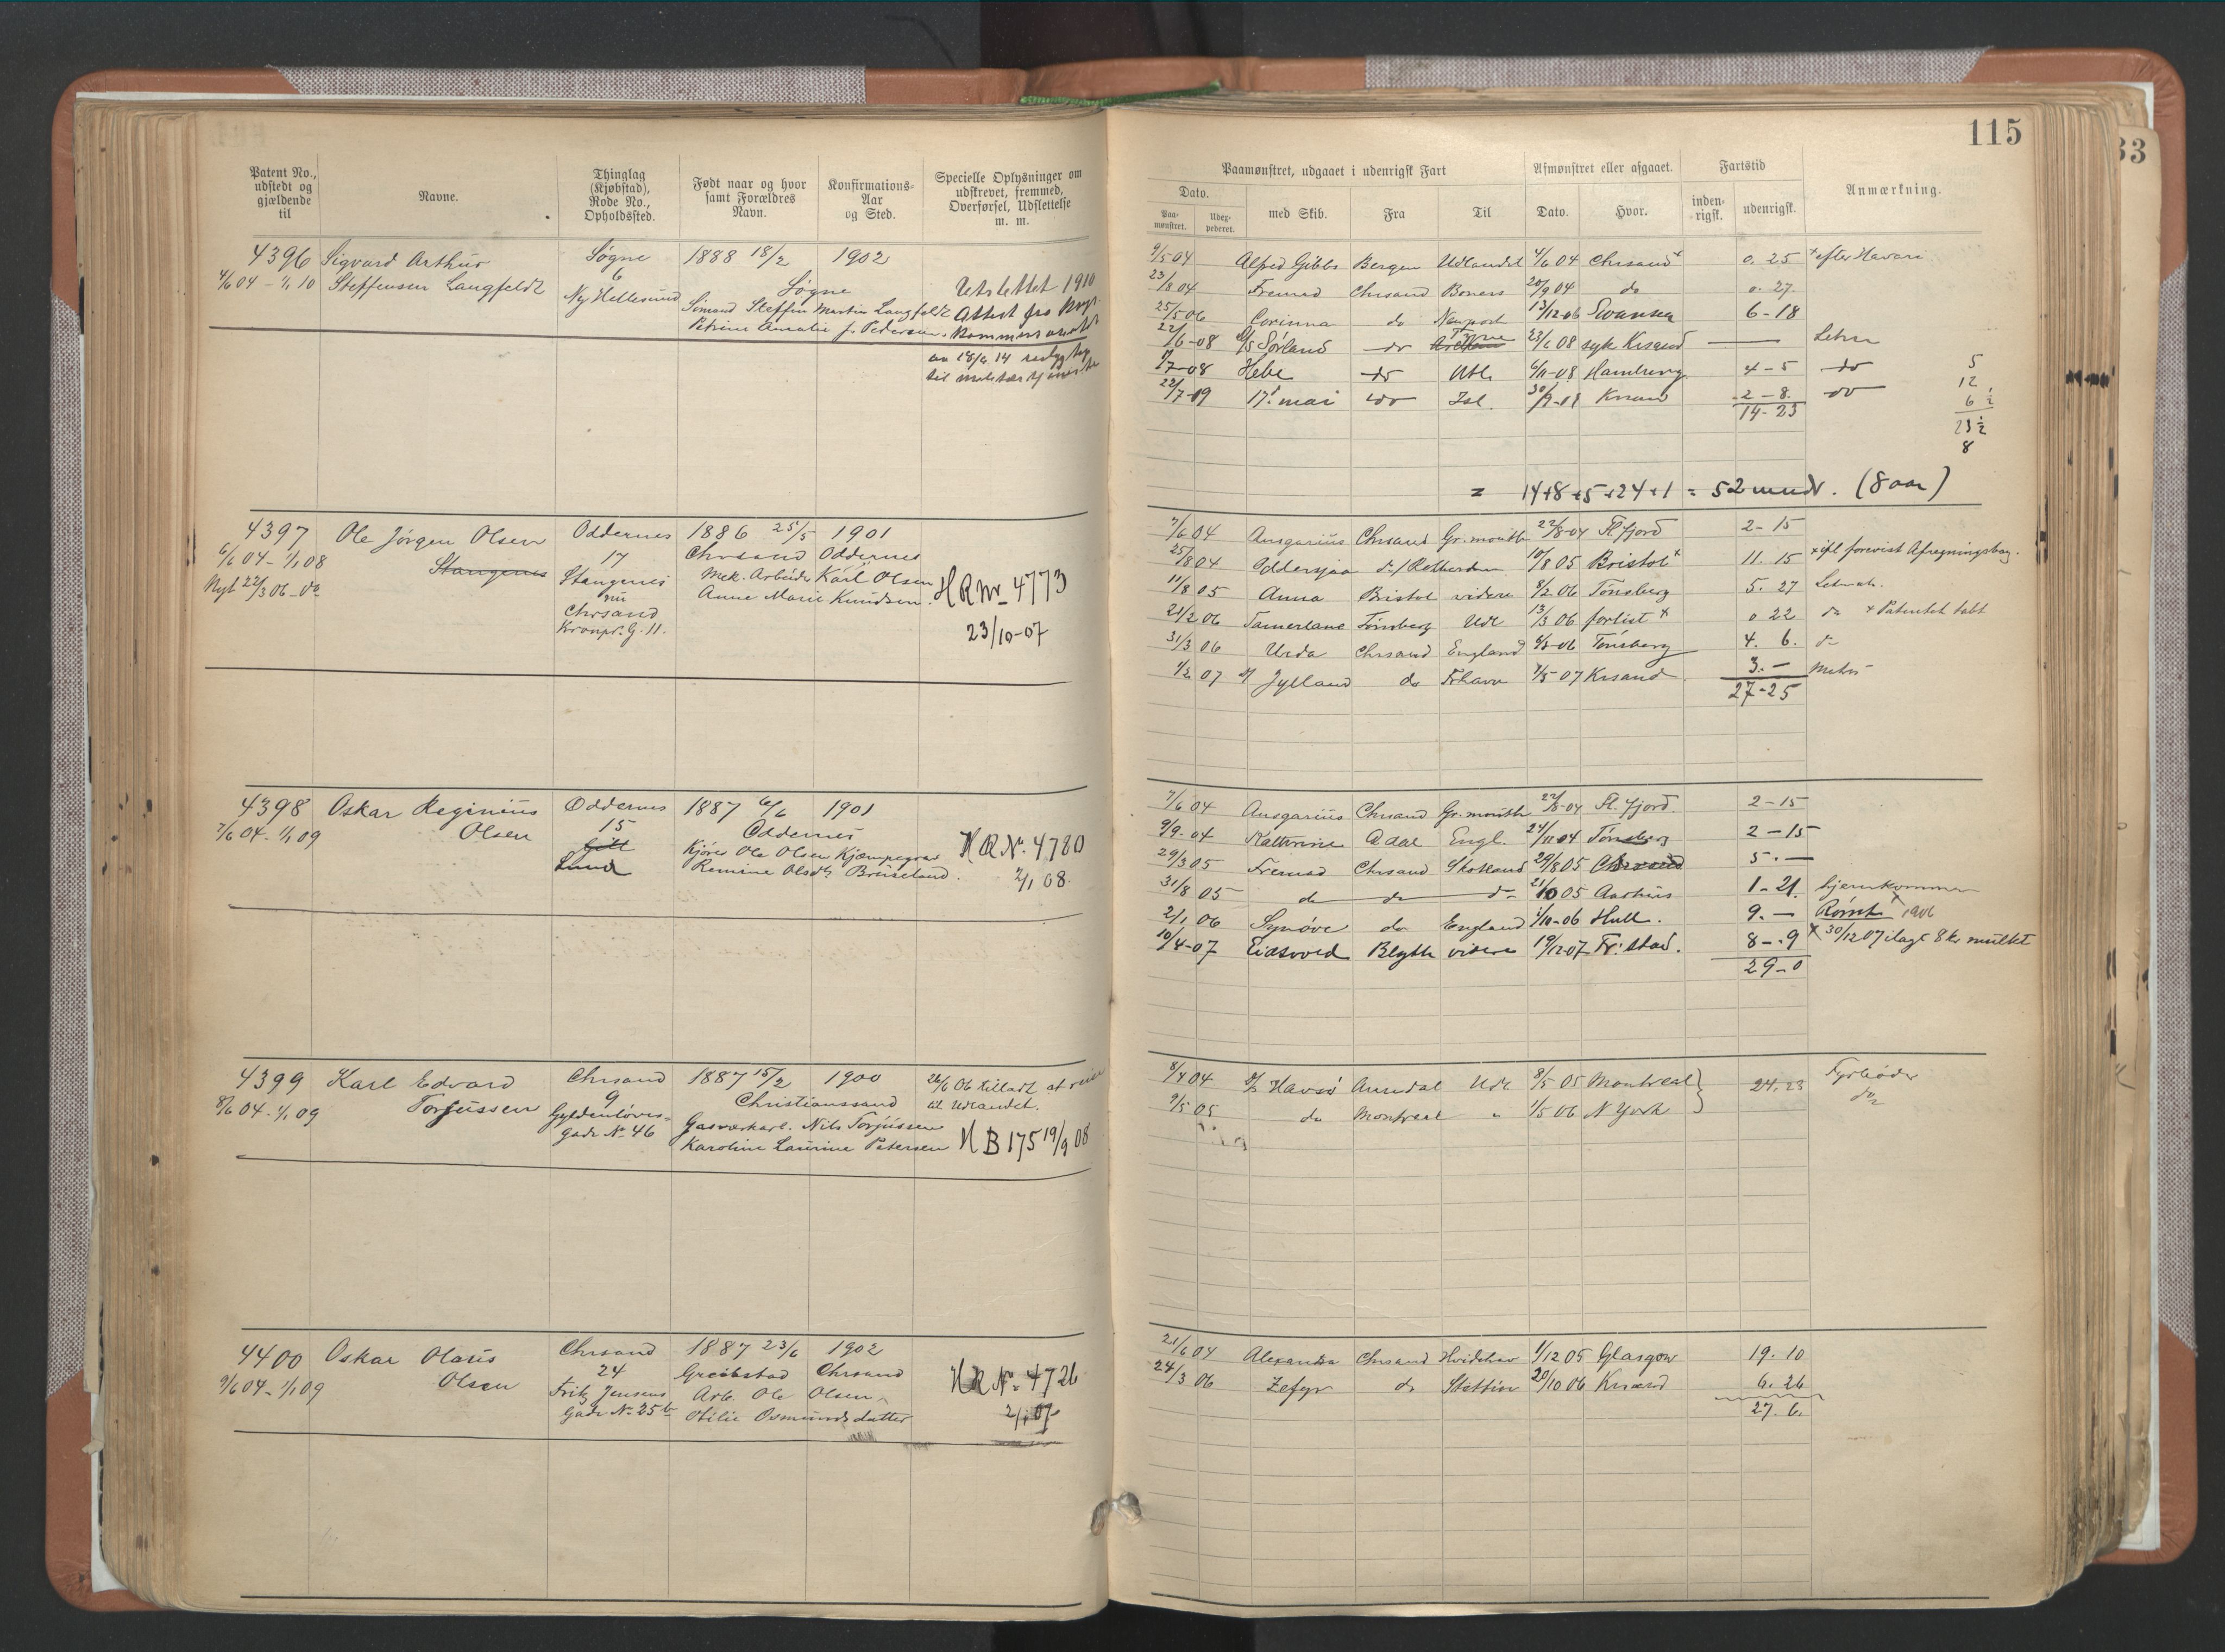 Patent No., udstedt og gjældende til
Navne.
Thinglag (Kjøbstad), Rode No., Opholdssted.
Født naar og hvor samt Forældres Navn.
Konfirmations-Aar og Sted.
Specielle Oplysninger om udskrevet, fremmed, Overførsel, Udslettelse m. m.
4396 Sigvard Arthur Søgne 1888 18/2 1902
4/6 04 - 1/1 10 Steffensen Langfeldt 6 Søgne Utslettet 1910
Ny Hellesund Sømand Steffen Martin Langfeldt Attest fra krigs-
Petrine Amalie f. Pedersen. kommissariat
4397 Ole Jørgen Olsen Oddernes 1886 25/5 1901
6/6 04 - 1/1 08 Stangenes 17 Chrsand Oddernes
Nyt 22/3 06 - do Stangenes Mek. Arbeider Karl Olsen
nu Anne Marie Knudsen. HR Nr. 4773
Chrsand 23/10-07
Kronpr. G. 11.
4398 Oskar Reginius Oddernes 1887 6/6 1901
7/6 04 - 1/1 09 Olsen 15 Oddernes
Gill Kjører Ole Olsen Kjæmpegrav HR Nr. 4780
Lund Remine Olsdtr Brüseland. 2/1 08.
4399 Karl Edvard Chrsand 1887 15/2 1900 26/6 06 tilladt at reise
8/6 04 - 1/1 09 Torjussen 9 Christianssand til Udlandet.
Gyldenløves- Gasværkarb. Nils Torjussen
gade No 46 Karoline Laurine Petersen HB 175 19/9 08
4400 Oskar Olaus Chrsand 1887 23/6 1902
9/6 04 - 1/1 09 Olsen 24 Greibstad Chrsand HR No. 4726
Fritz Jensens Arb. Ole Olsen
Gade No 25 b Otilie Osmundsdatter 2/1 07
115
33
Paamønstret, udgaaet i udenrigsk Fart
Afmønstret eller afgaaet.
Fartstid
Anmærkning.
Dato.
Paa-mønstret.
Udex-pederet.
med Skib.
Fra
Til
Dato.
Hvor.
inden-rigsk.
udenrigsk.
9/5 04 Alfred Gibbs Bergen Udlandet 4/6 04 Chrsand x 0. 25 x efter Havari
23/8 04 Fremad Chrsand Boness 20/9 04 do 0. 27.
25/5 06 Corinna do Newport 13/12-06 Swansea 6-18
22/6-08 D/S Sørland do Tyne 23/6 08 syk Krsand —
7-08 Hebe do Utl. 6/11-08 Hamburg 4-5 do
22/7-09 17. mai do Isl. Krsand 2-8. do
14-23
5
12
6 ½
23 ½
8
= 14+8+5+24+1 = 52 mndr. (8 aar)
7/6 04 Ansgarius Chrsand Gr. mouth 22/8-04 Fl. fjord 2-15
25/8 04 Oddersjaa do/Rotterdam 10/8 05 Bristol x 11. 15 x ifl forevist Afregningsbog.
11/8 05 Anna Bristol videre 8/2 06 Tønsberg 5. 27
21/2 06 Tamerlane Tønsberg Udl 13/3 06 forlist x 0 22 do x Patentet tabt
31/3 06 Urda Chrsand England 6/8-06 Tønsberg 4. 6. do
1/2 07 Jylland do Frhavn 1/5 07 Krsand. 3. — Matros
27-25
7/6 04 Ansgarius Chrsand Gr. mouth 22/8-04 Fl. fjord. 2-15
9/9-04 Kathrine Adal Engl. 24/11 04 Tønsberg 2-15
29/3 05 Fremad Chrsand Skotland 29/8 05 Chrsand 5. —
31/8 05 do do do 21/10 05 Aarhus 1-21. hjemkommen
2/1 06 Synøve do England 1/10-06 Hull. 9. — Rømt x 1906
10/4-07 Eidsvold Blyth videre 19/12-07 Fr: stad. 8-9 x 30/12 07 ilagt 8 kr mulkt
29-0
8/4 04 D/S Havsø Arendal Udl 8/5 05 Montreal } 24. 23 Fyrbøder
9/5 05 do Montreal " 1/5 06 N York } do
21/6 04 Alexandra Chrsand Hvidehav 1/12 05 Glasgow 19. 10
24/3 06 Zefyr do Stettin 20/10 06 Krsand 6. 26
27. 6.